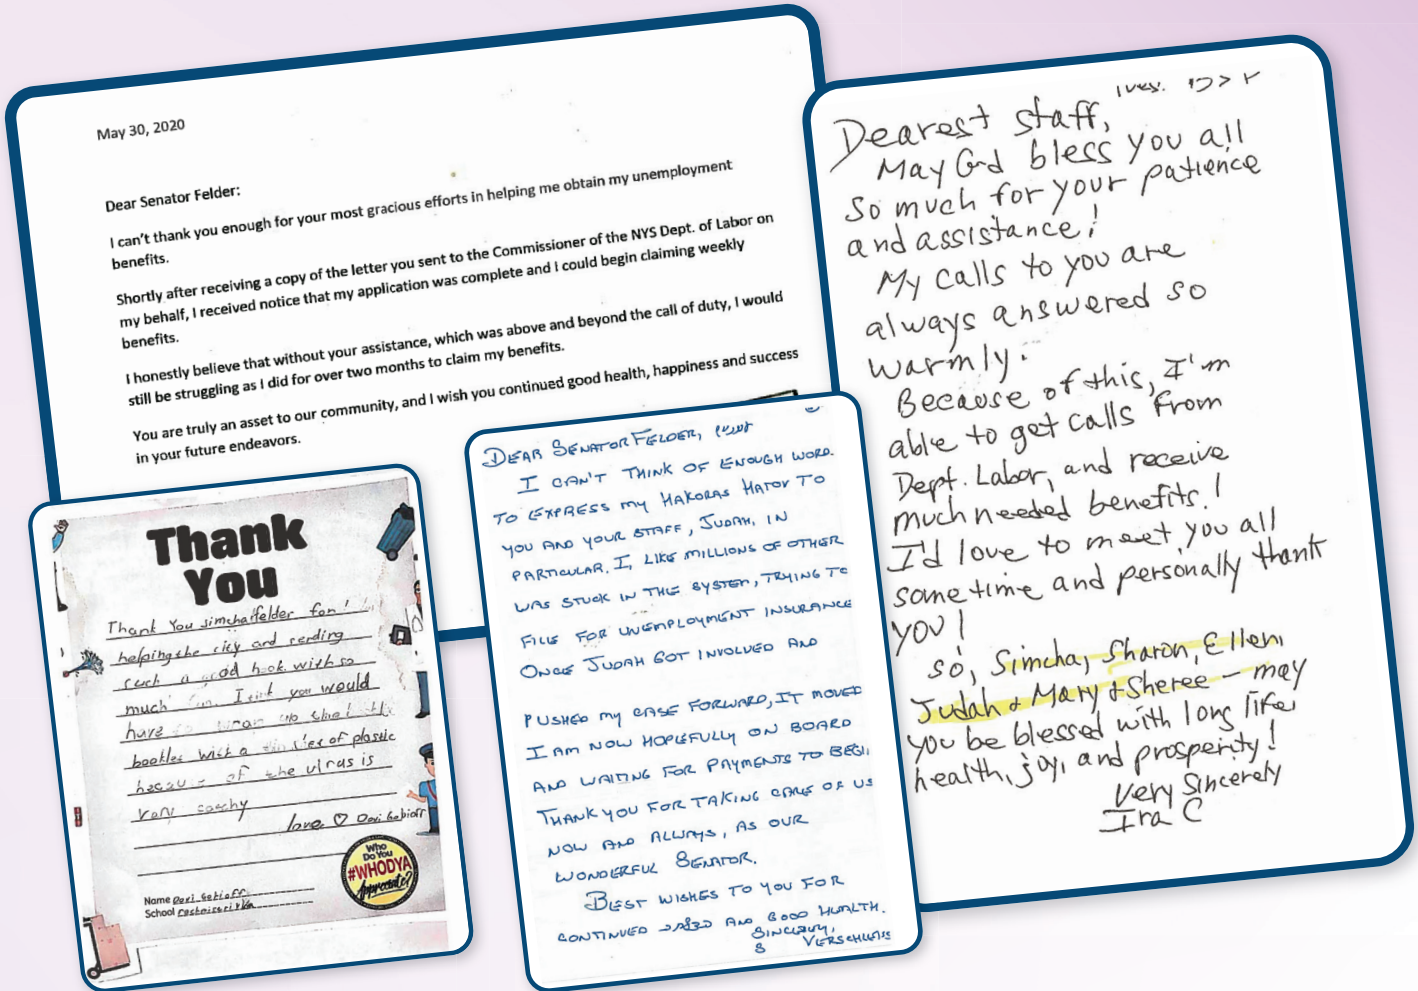 May 30, 2020
Dear Senator Felder:
I can't thank you enough for your most gracious efforts in helping me obtain my unemployment
benefits.
Shortly after receiving a copy of the letter you sent to the Commissioner of the NYS Dept. of Labor on
my behalf, I received notice that my application was complete and I could begin claiming weekly
benefits.
I honestly believe that without your assistance, which was above and beyond the call of duty, I would
still be struggling as I did for over two months to claim my benefits.
You are truly an asset to our community, and I wish you continued good health, happiness and success
in your future endeavors.
Thank
You
Thank You simchaffelder for
helping the city and sending
such a book with so
much fun. I you would
have to
bookles with a of plastic
because of the virus is
very
love ♡
Who
Do You
#WHODYA
Appreciate?
Name
School
DEAR SENATOR FELDER,
I CAN'T THINK OF ENOUGH WORD.
TO EXPRESS MY HAKORAS HATOV TO
YOU AND YOUR STAFF, JUDAH, IN
PARTICULAR. I, LIKE MILLIONS OF OTHER
WAS STUCK IN THE SYSTEM, TRYING TO
FILE FOR UNEMPLOYMENT INSURANCE
ONCE JUDAH GOT INVOLVED AND
PUSHED MY CASE FORWARD, IT MOVED
I AM NOW HOPEFULLY ON BOARD
AND WAITING FOR PAYMENTS TO BEGI
THANK YOU FOR TAKING CARE OF US
NOW AND ALWAYS, AS OUR
WONDERFUL SENATOR.
BEST WISHES TO YOU FOR
CONTINUED AND GOOD HEALTH.
SINCERELY,
Dearest staff,
May G-d bless you all
so much for your patience
and assistance!
My calls to you are
always answered so
warmly.
Because of this, I'm
able to get calls from
Dept. Labor, and receive
much needed benefits!
I'd love to meet you all
sometime and personally thank
you!
So, Simcha, Sharon, Ellen,
Judah & Mary & Sheree - may
you be blessed with long life,
health, joy, and prosperity!
Very Sincerely
Ira C